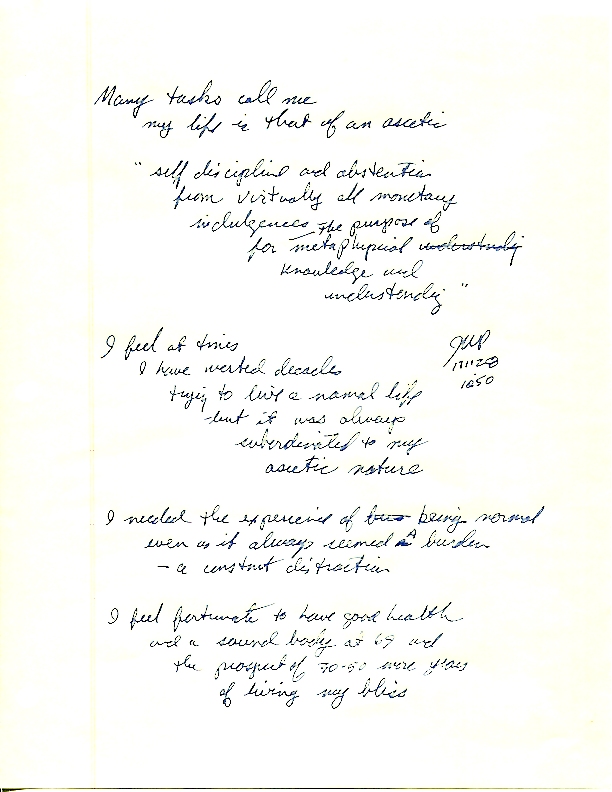 Many tasks call me
my life is that of an ascetic
" self discipline and abstention
from virtually all monetary
indulgences the purpose of
for metaphysical understandig
knowledge and
understandig "
I feel at times
I have wasted decades
tryig to live a normal life
but it was always
subordinated to my
ascetic nature
1650
I needed the experience of being normal
even as it always seemed A burden
- a constant distraction
I feel fortunate to have good health
and a sound body at 69 and
the prospect of more years
of living my bliss